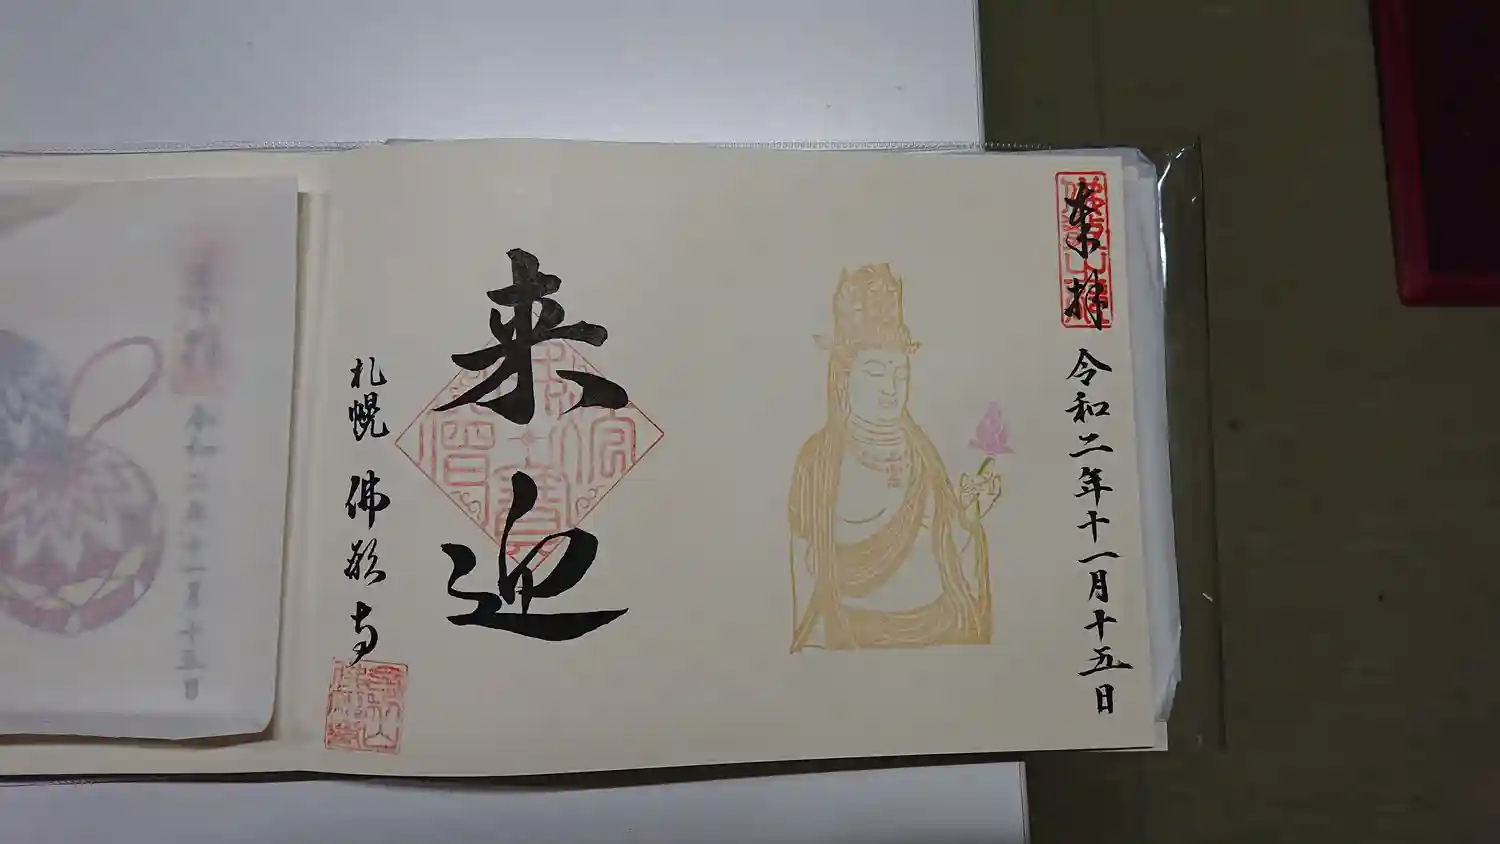 奉拝
令和二年十一月十五日
来迎
札幌 佛願寺
令和二年十一月十五日